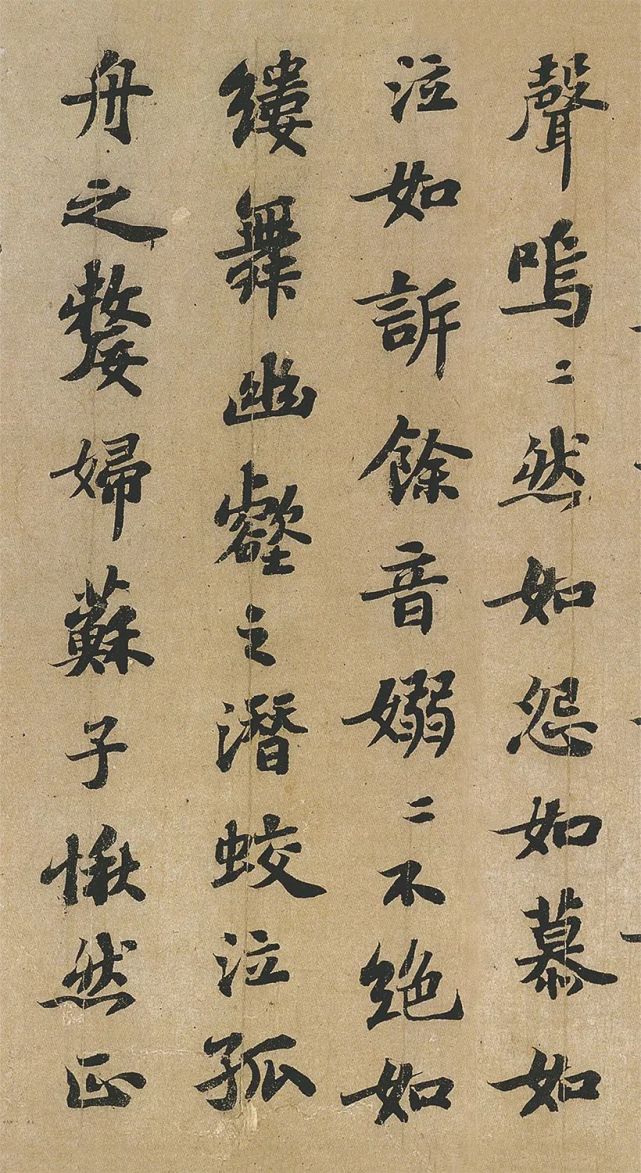 聲嗚〻然如怨如慕如
泣如訴餘音嫋〻不絶如
縷舞幽壑之潛蛟泣孤
舟之嫠婦蘇子愀然正